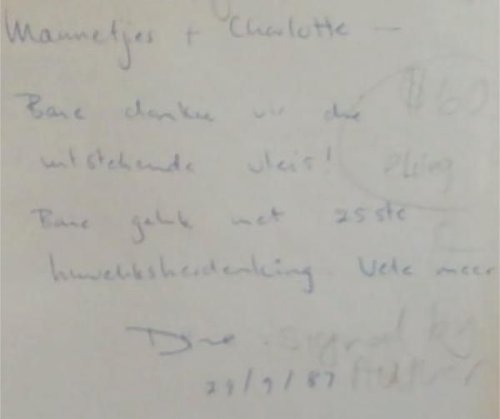 Mannetjes + Charlotte —
Baie dankie vir die $60
uitstekende vleis!
Baie geluk met 25ste
huweliksherdenking. Vele meer
signed by
29/9/87 Author